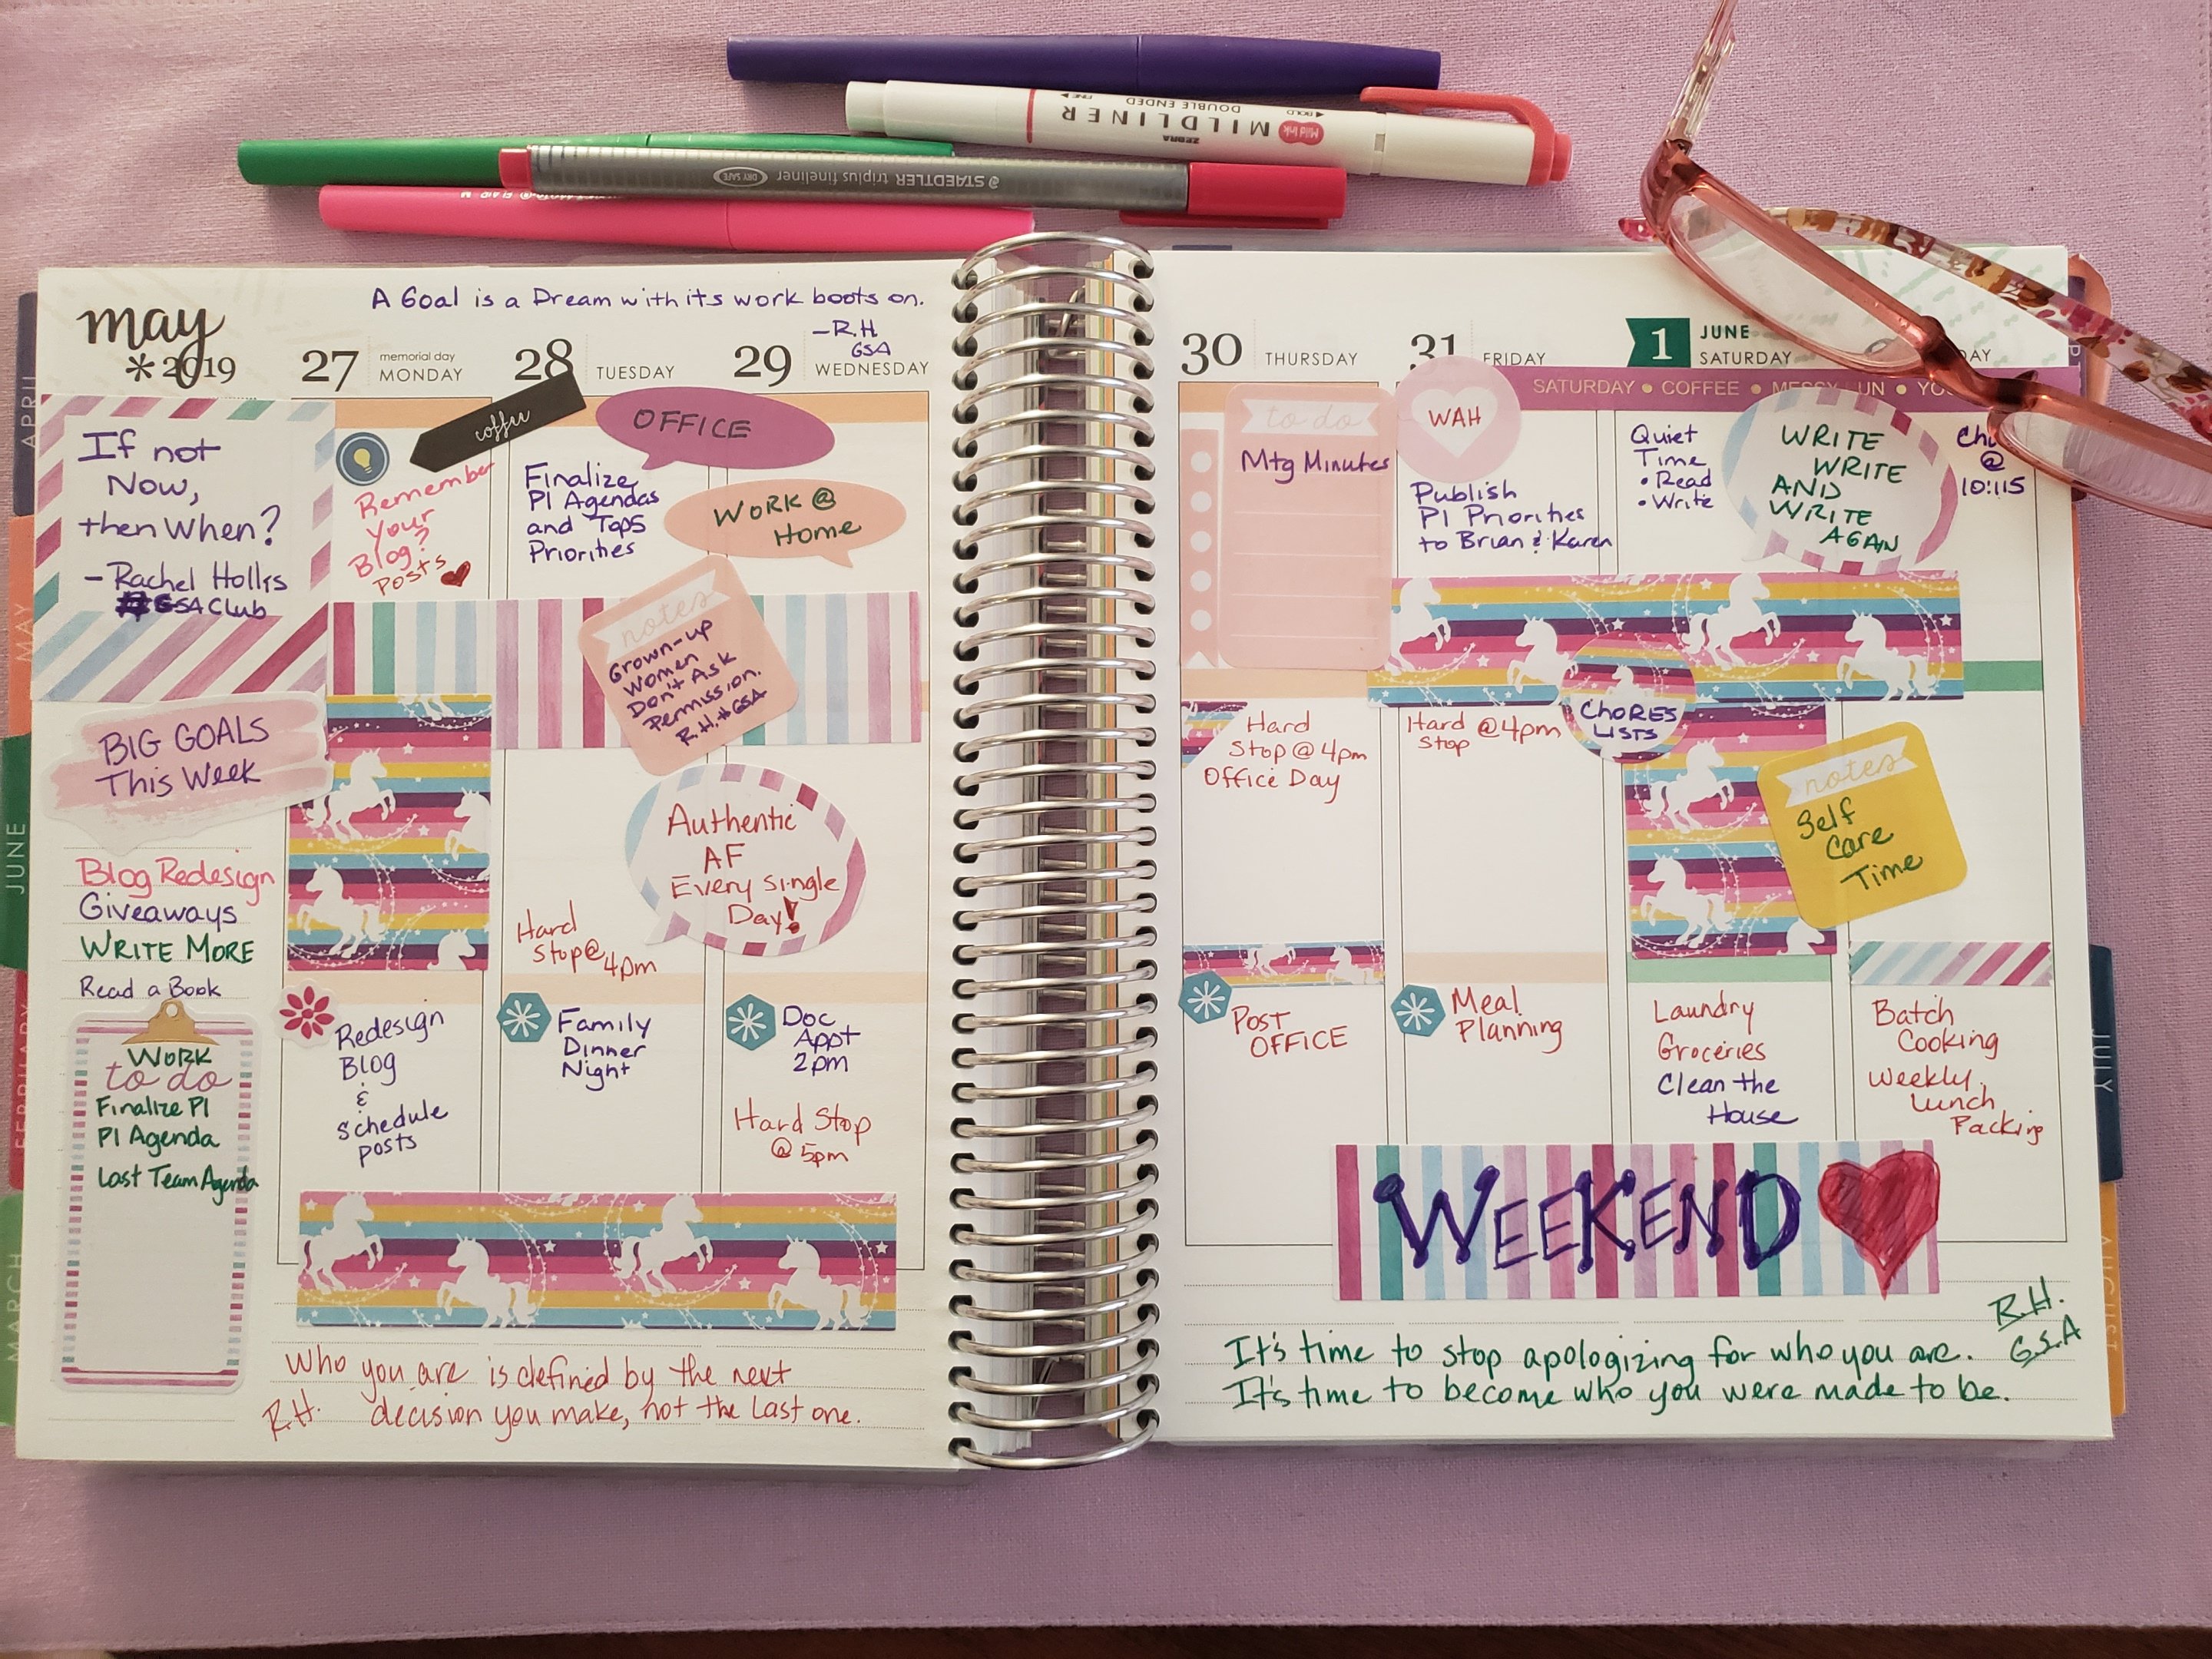 ZEBRA
MILDLINER
DOUBLE ENDED
Mild Ink
BOLD
STAEDTLER triplus fineliner
DRY SAFE
APRIL
MAY
JUNE
FEBRUARY
MARCH
JULY
AUGUST
may
*2019
A Goal is a Dream with its work boots on.
-R.H
GSA
27
memorial day
MONDAY
28
TUESDAY
29
WEDNESDAY
If not
Now,
then When?
- Rachel Hollis
GSA Club
BIG GOALS
This Week
Blog Redesign
Giveaways
WRITE MORE
Read a Book
WORK
to do
Finalize PI
PI Agenda
Last Team Agenda
coffee
Remember
Your
Blog?
Posts
Redesign
Blog
&
Schedule
posts
OFFICE
Finalize
PI Agendas
and Top5
Priorities
Hard
Stop@
4pm
Family
Dinner
Night
WORK @
Home
notes
Grown-up
Women
Don't Ask
Permission.
R.H. #GSA
Authentic
AF
Every Single
Day!
Doc
Appt
2pm
Hard Stop
@ 5pm
Who you are is defined by the next
R.H. decision you make, not the last one.
30
THURSDAY
31
FRIDAY
1
JUNE
SATURDAY
SATURDAY • COFFEE • MESSY
to do
Mtg Minutes
Hard
Stop @ 4pm
Office Day
Post
OFFICE
WAH
Publish
PI Priorities
to Brian & Karen
Hard @4pm
Stop
Meal
Planning
Quiet
Time
• Read
• Write
CHORES
LISTS
Laundry
Groceries
Clean the
House
WRITE
WRITE
AND
WRITE
AGAIN
@
10:15
notes
Self
Care
Time
Batch
Cooking
Weekly
Lunch
Packing
WEEKEND
R.H.
G.S.A
It's time to stop apologizing for who you are.
It's time to become who you were made to be.